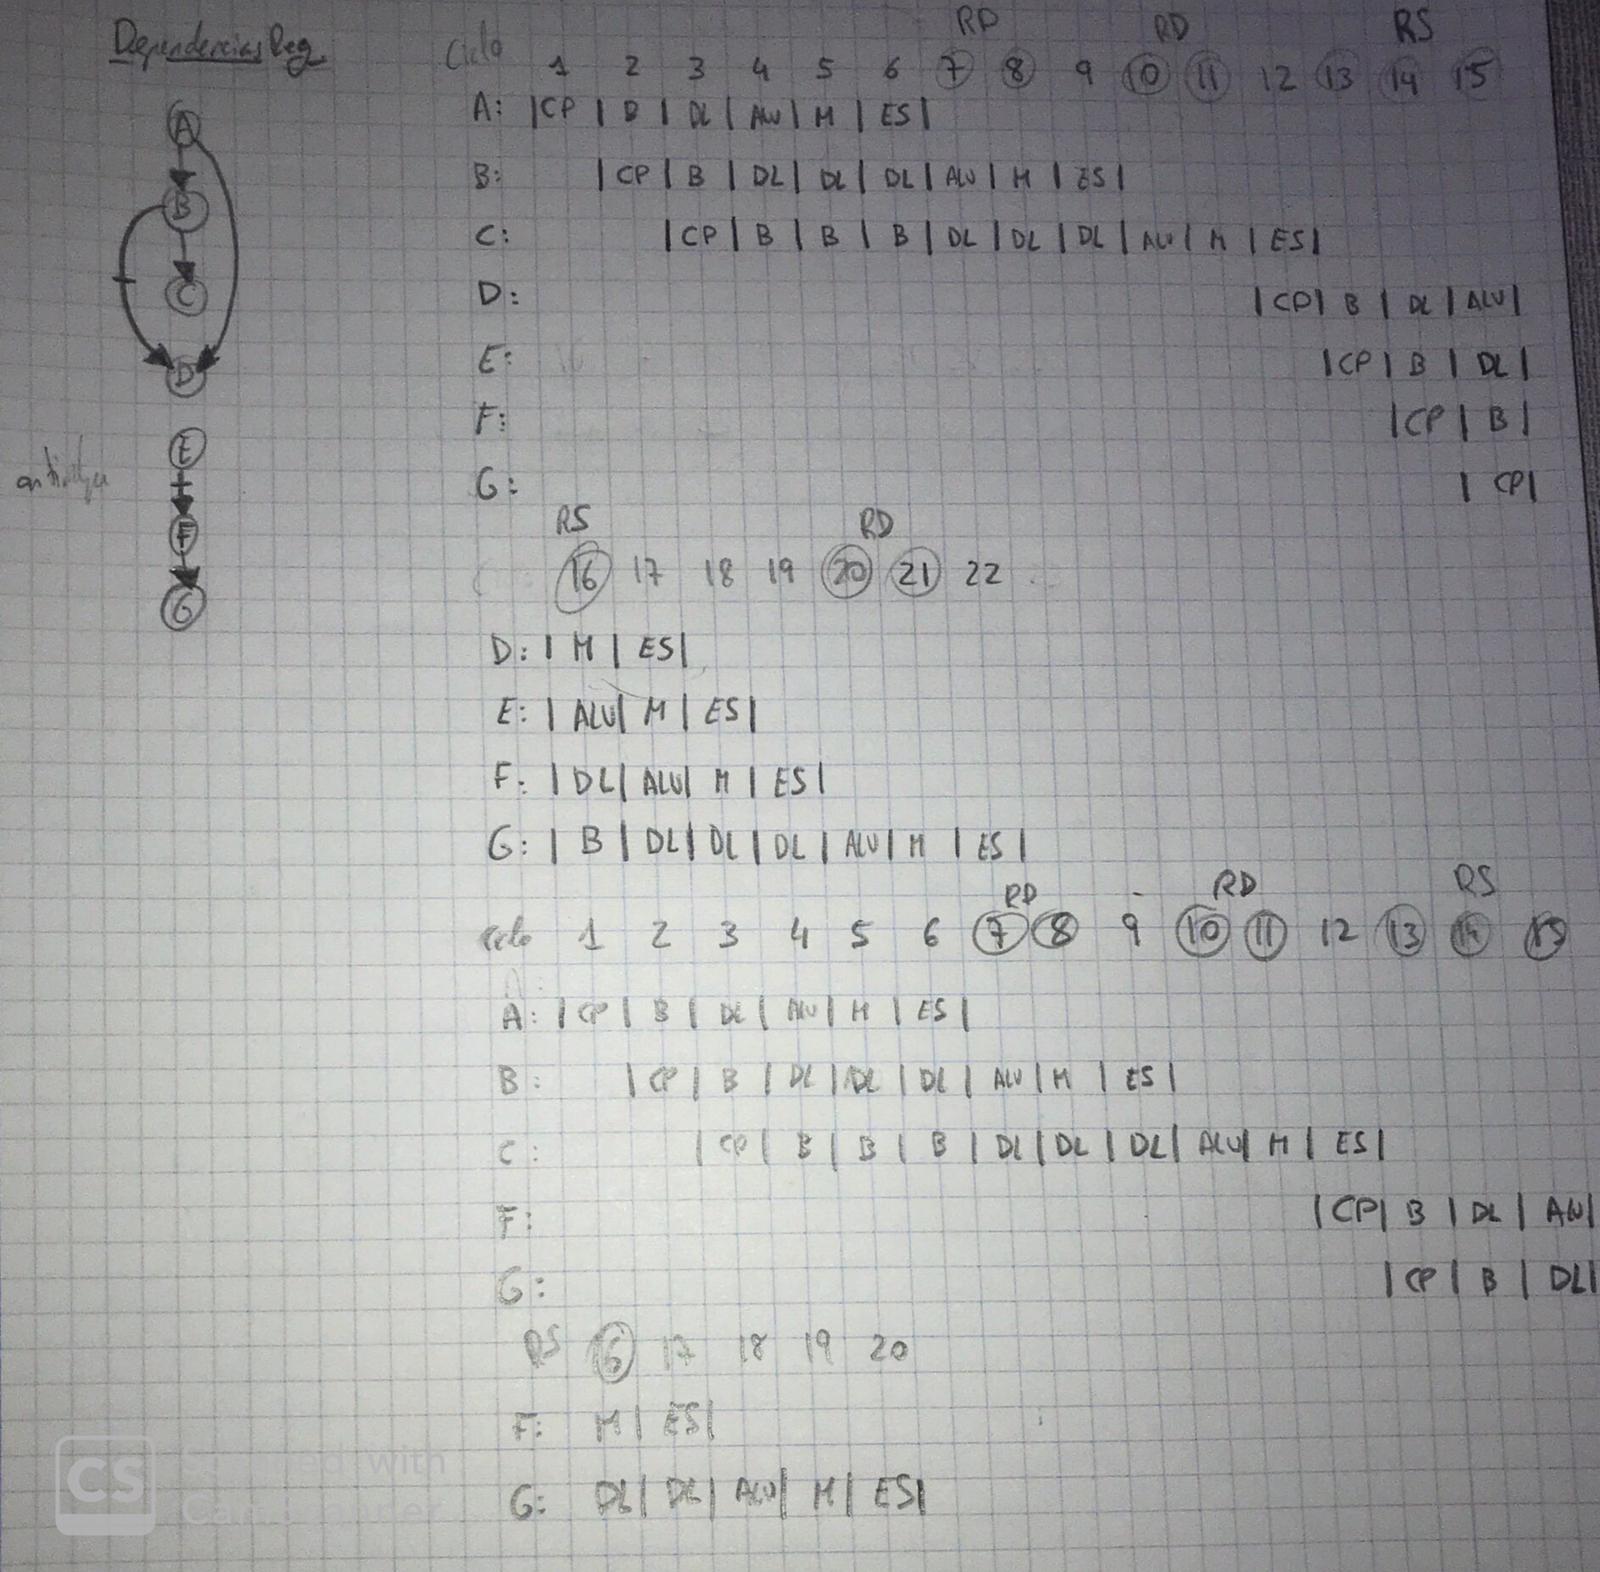 Dependencias Reg
A
B
C
D
E
F
G
RD RD RS
Ciclo 1 2 3 4 5 6 7 8 9 10 11 12 13 14 15
A: |CP | D | DL | ALU | M | ES|
B: | CP | B | DL | DL | DL | ALU | M | ES |
C: | CP | B | B | B | DL | DL | DL | ALU | M | ES|
D: |CP| B | DL | ALU|
E: |CP | B | DL |
F: |CP | B |
G: | CP|
RS RD
16 17 18 19 20 21 22
D: | M | ES|
E: | ALU| M | ES |
F: | DL| ALU| M | ES |
G: | B | DL| DL | DL | ALU | M | ES |
RD RD RS
Ciclo 1 2 3 4 5 6 7 8 9 10 11 12 13 14 15
A: | CP | B | DL | ALU | M | ES |
B: | CP | B | DL | DL | DL | ALU | M | ES |
C: | CP | B | B | B | DL | DL | DL | ALU| M | ES|
F: |CP| B | DL | ALU|
G: | CP | B | DL|
RS 16 17 18 19 20
F: M | ES|
G: DL| DL| ALU| M | ES|
CS Scanned with
CamScanner